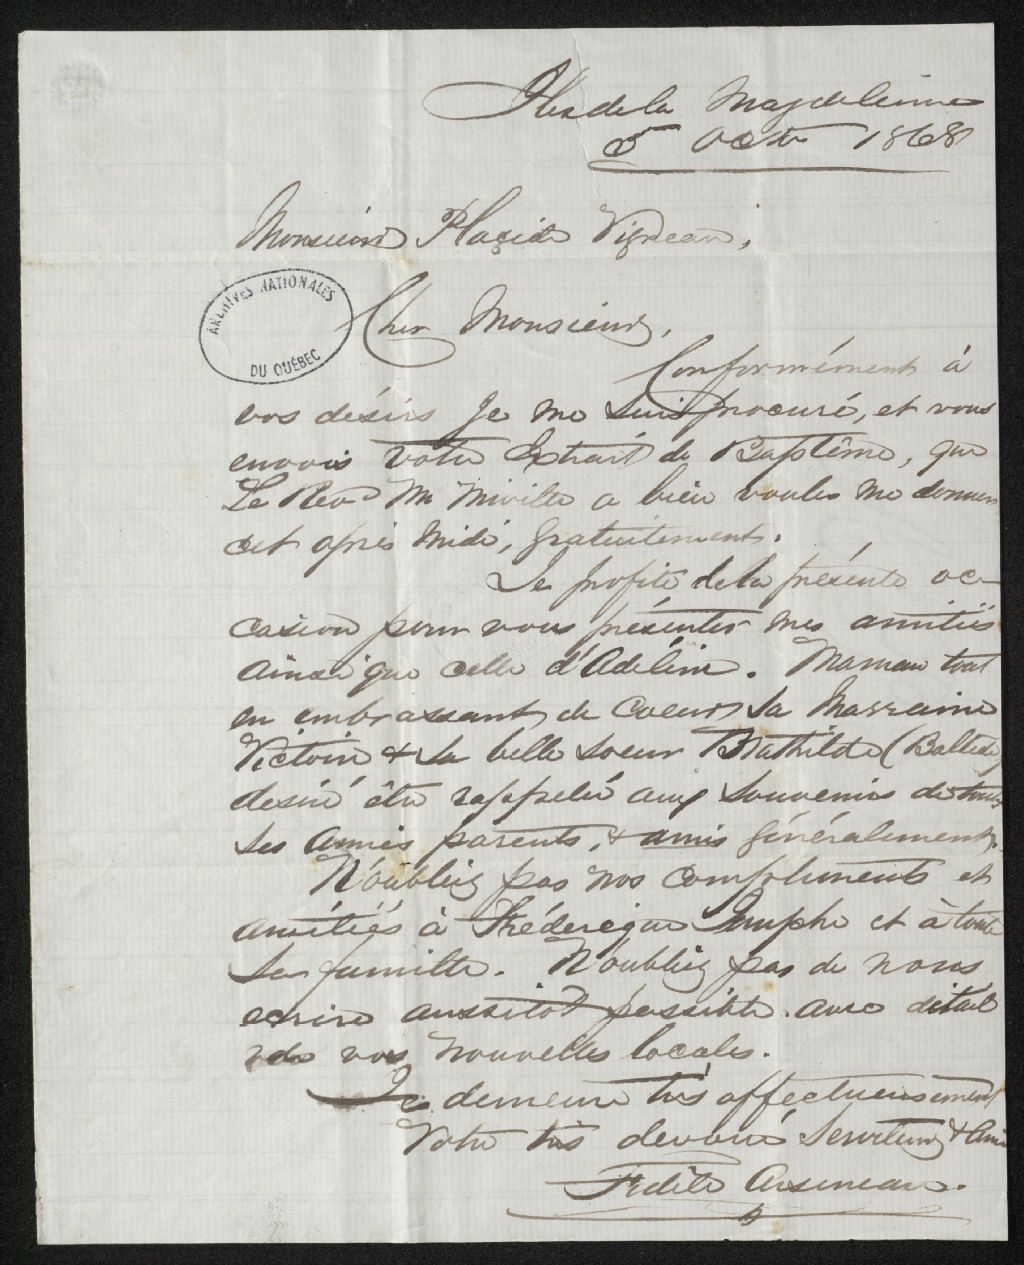 Iles de la Magdeleine
5 Octr 1868
Monsieur Placide Vigneau,
ARCHIVES NATIONALES
DU QUÉBEC
Cher Monsieur,
Conformément à
vos désirs Je me suis procuré, et vous
envois votre Extrait de Baptême, que
Le Revd Mr Miville a bien voulu me donner
cet après midi, gratuitement.
Je profite de la présente oc-
casion pour vous présenter mes amitiés
ainsi que celle d'Adeline. Maman tout
en embrassant de Coeur Sa Marraine
Victoire & Sa belle Soeur Mathilde (
desire être rappelée aux Souvenirs de tous
ses amies parents, & amis généralement.
N'oubliez pas nos compliments et
amitiés à Fréderique Jomphe et à toute
Sa famille. N'oubliez pas de nous
ecrire aussitot possible avec détail
de vos nouvelles locales.
Je demeure très affectueusement
Votre très devoué Serviteur & Ami
Fidèle Arseneau.